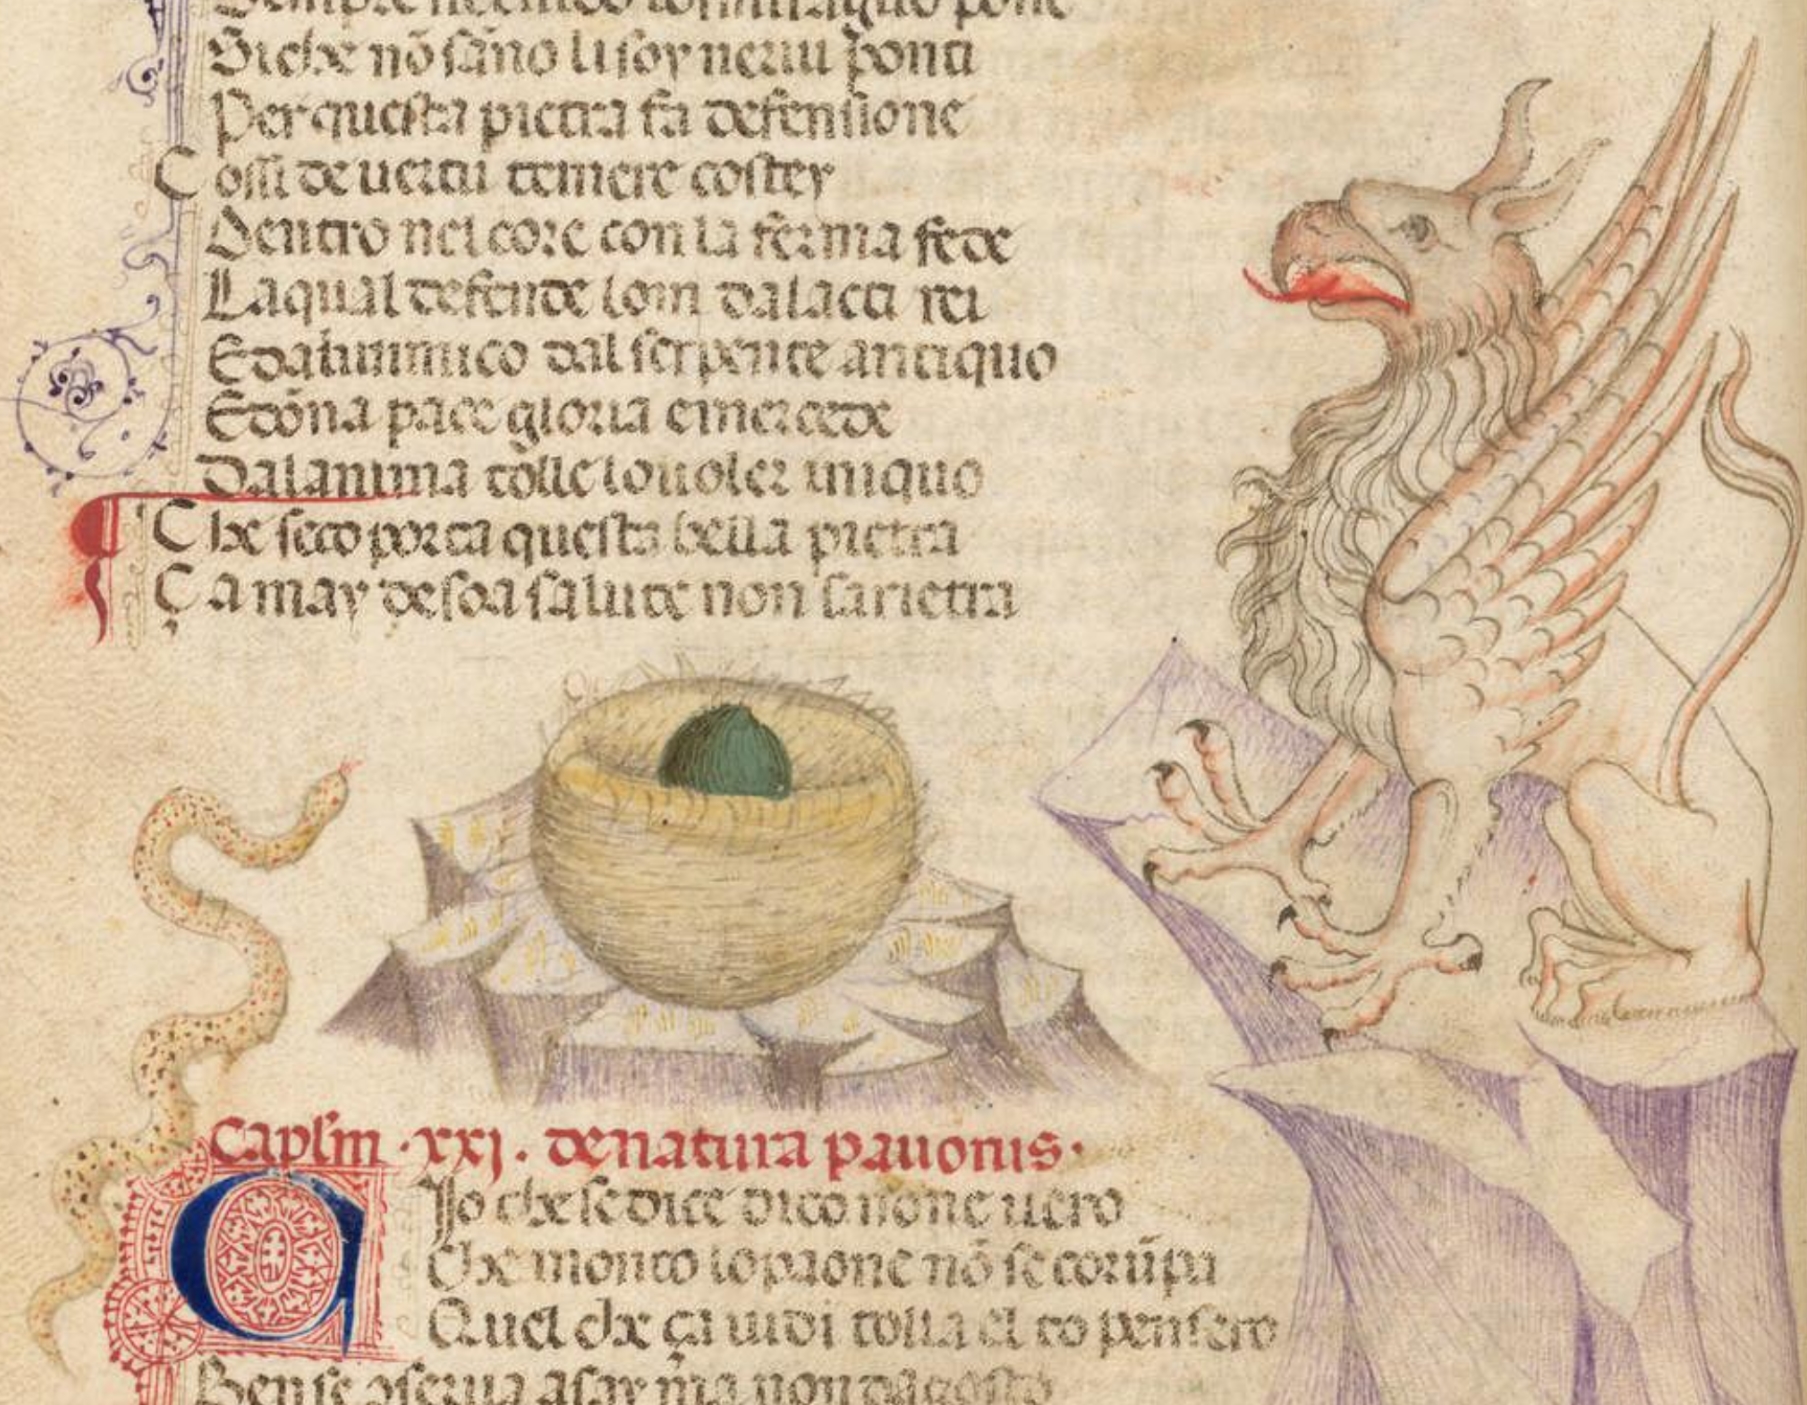 Siche nō sāno li soy neruu ponti
Per questa pietra fa defensione
Cossi de uertu temere costey
Dentro nel core con la ferma fede
La qual defende lom da lacti rei
E dalinimico dal serpente antiquo
E dōna pace gloria e mercede
Dalanima tolle lo uoler iniquo
Che seco porta questa bella pietra
Ça may de soa salute non sarietra
Caplm .xxj. de natura pauonis.
Qio che se dice dico none uero
Che monto lo paone nō se corūpa
Quel che ça uidi tolla el to pensero
Ben se oserua asay ma non dagosto